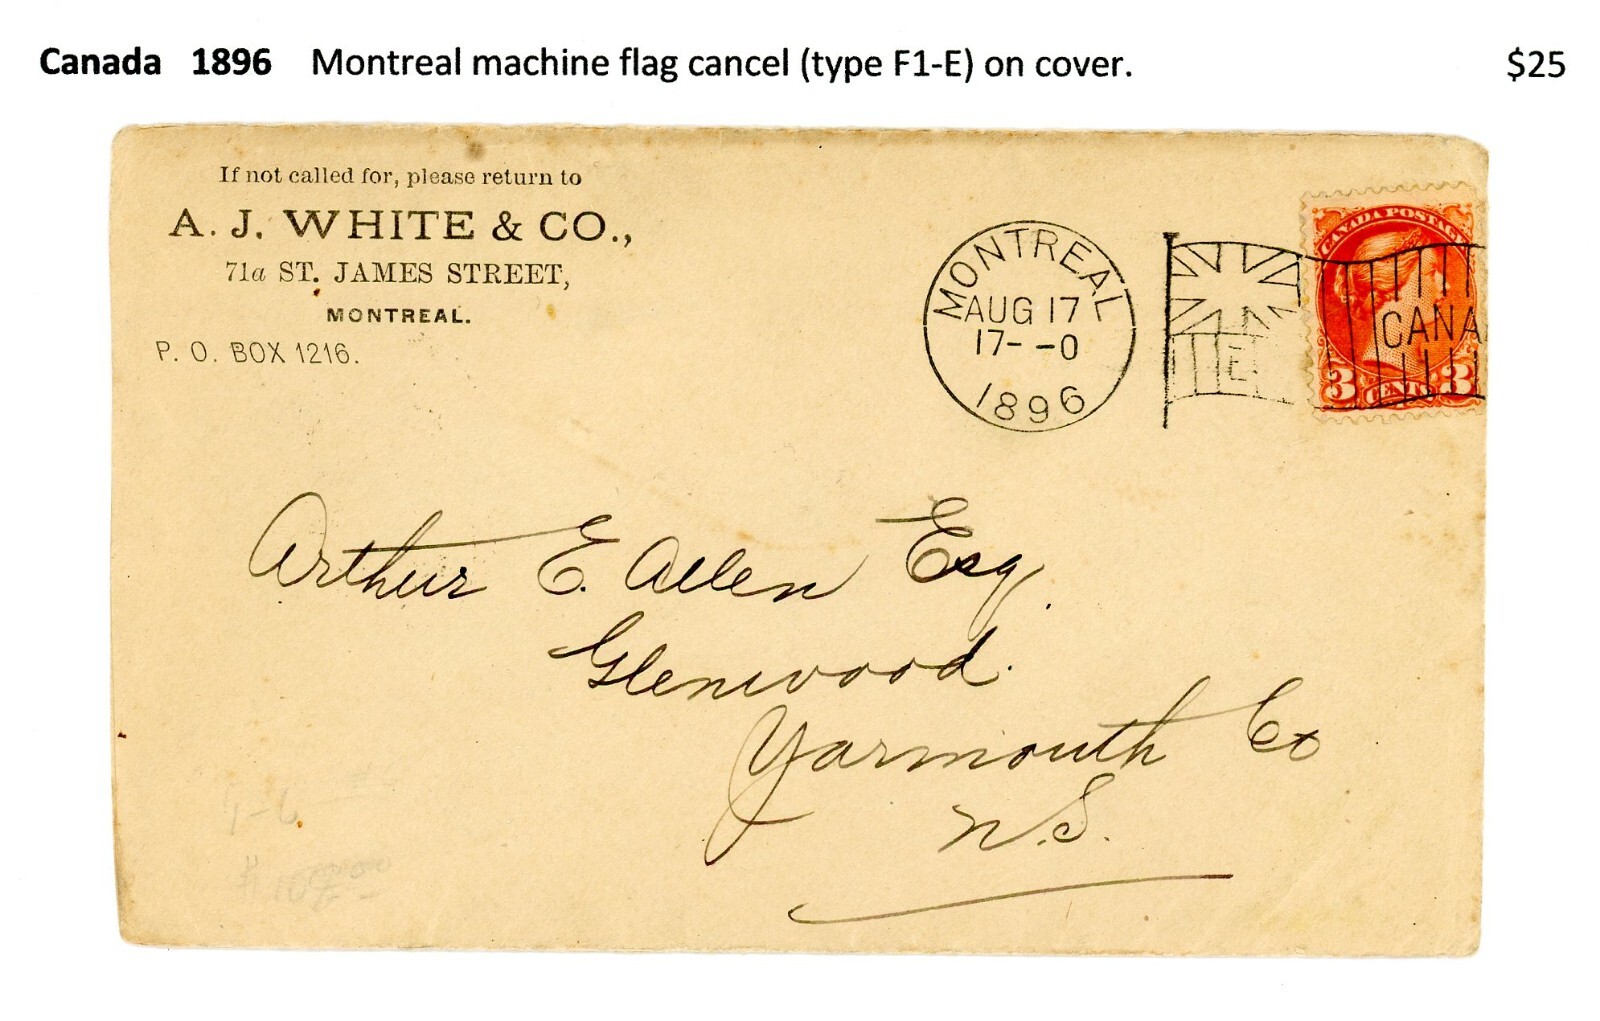 Canada 1896 Montreal machine flag cancel (type F1-E) on cover. $25
If not called for, please return to
A. J. WHITE & CO.,
71a ST. JAMES STREET,
MONTREAL.
P. O. BOX 1216.
MONTREAL
AUG 17
17- -0
1896
E.
CANADA POSTAGE
CANA
3 CENTS 3
Arthur E. Allen Esq.
Glenwood.
Yarmouth Co
N.S.